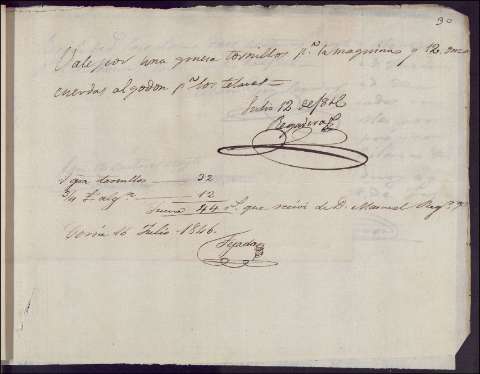 30
Vale por una gruesa tornillos p.ª la maquinas y 12 onza
cuerdas algodon p.ª los telares =
Julio 12 de 1842
Requiera
1 gsa tornillos 32
3/4 alg.n 12
Suma 44 r.s que recivi de D. Manuel Reg.ra
16 Julio 1846.
Tejada